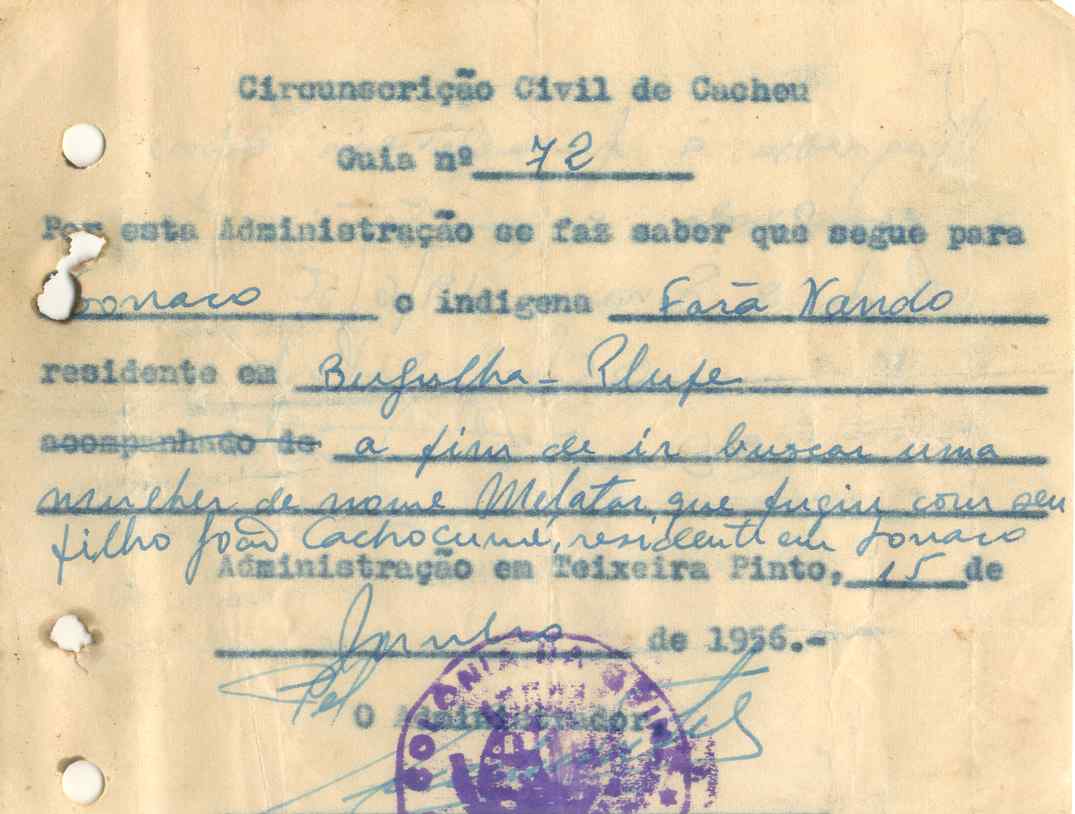 Circunscrição Civil de Cacheu
Guia nº 72
Por esta Administração se faz saber que segue para
o indigena Fará Nando
residente em Bugulha - Plupe
acompanhado de a fim de ir buscar uma
mulher de nome Melatar, que fugiu com seu
filho João Cachocumé, residente em Jonaco
Administração em Teixeira Pinto, 15 de
de 1956.-
Pel
O Administrador
COLONIA DA GUINÉ